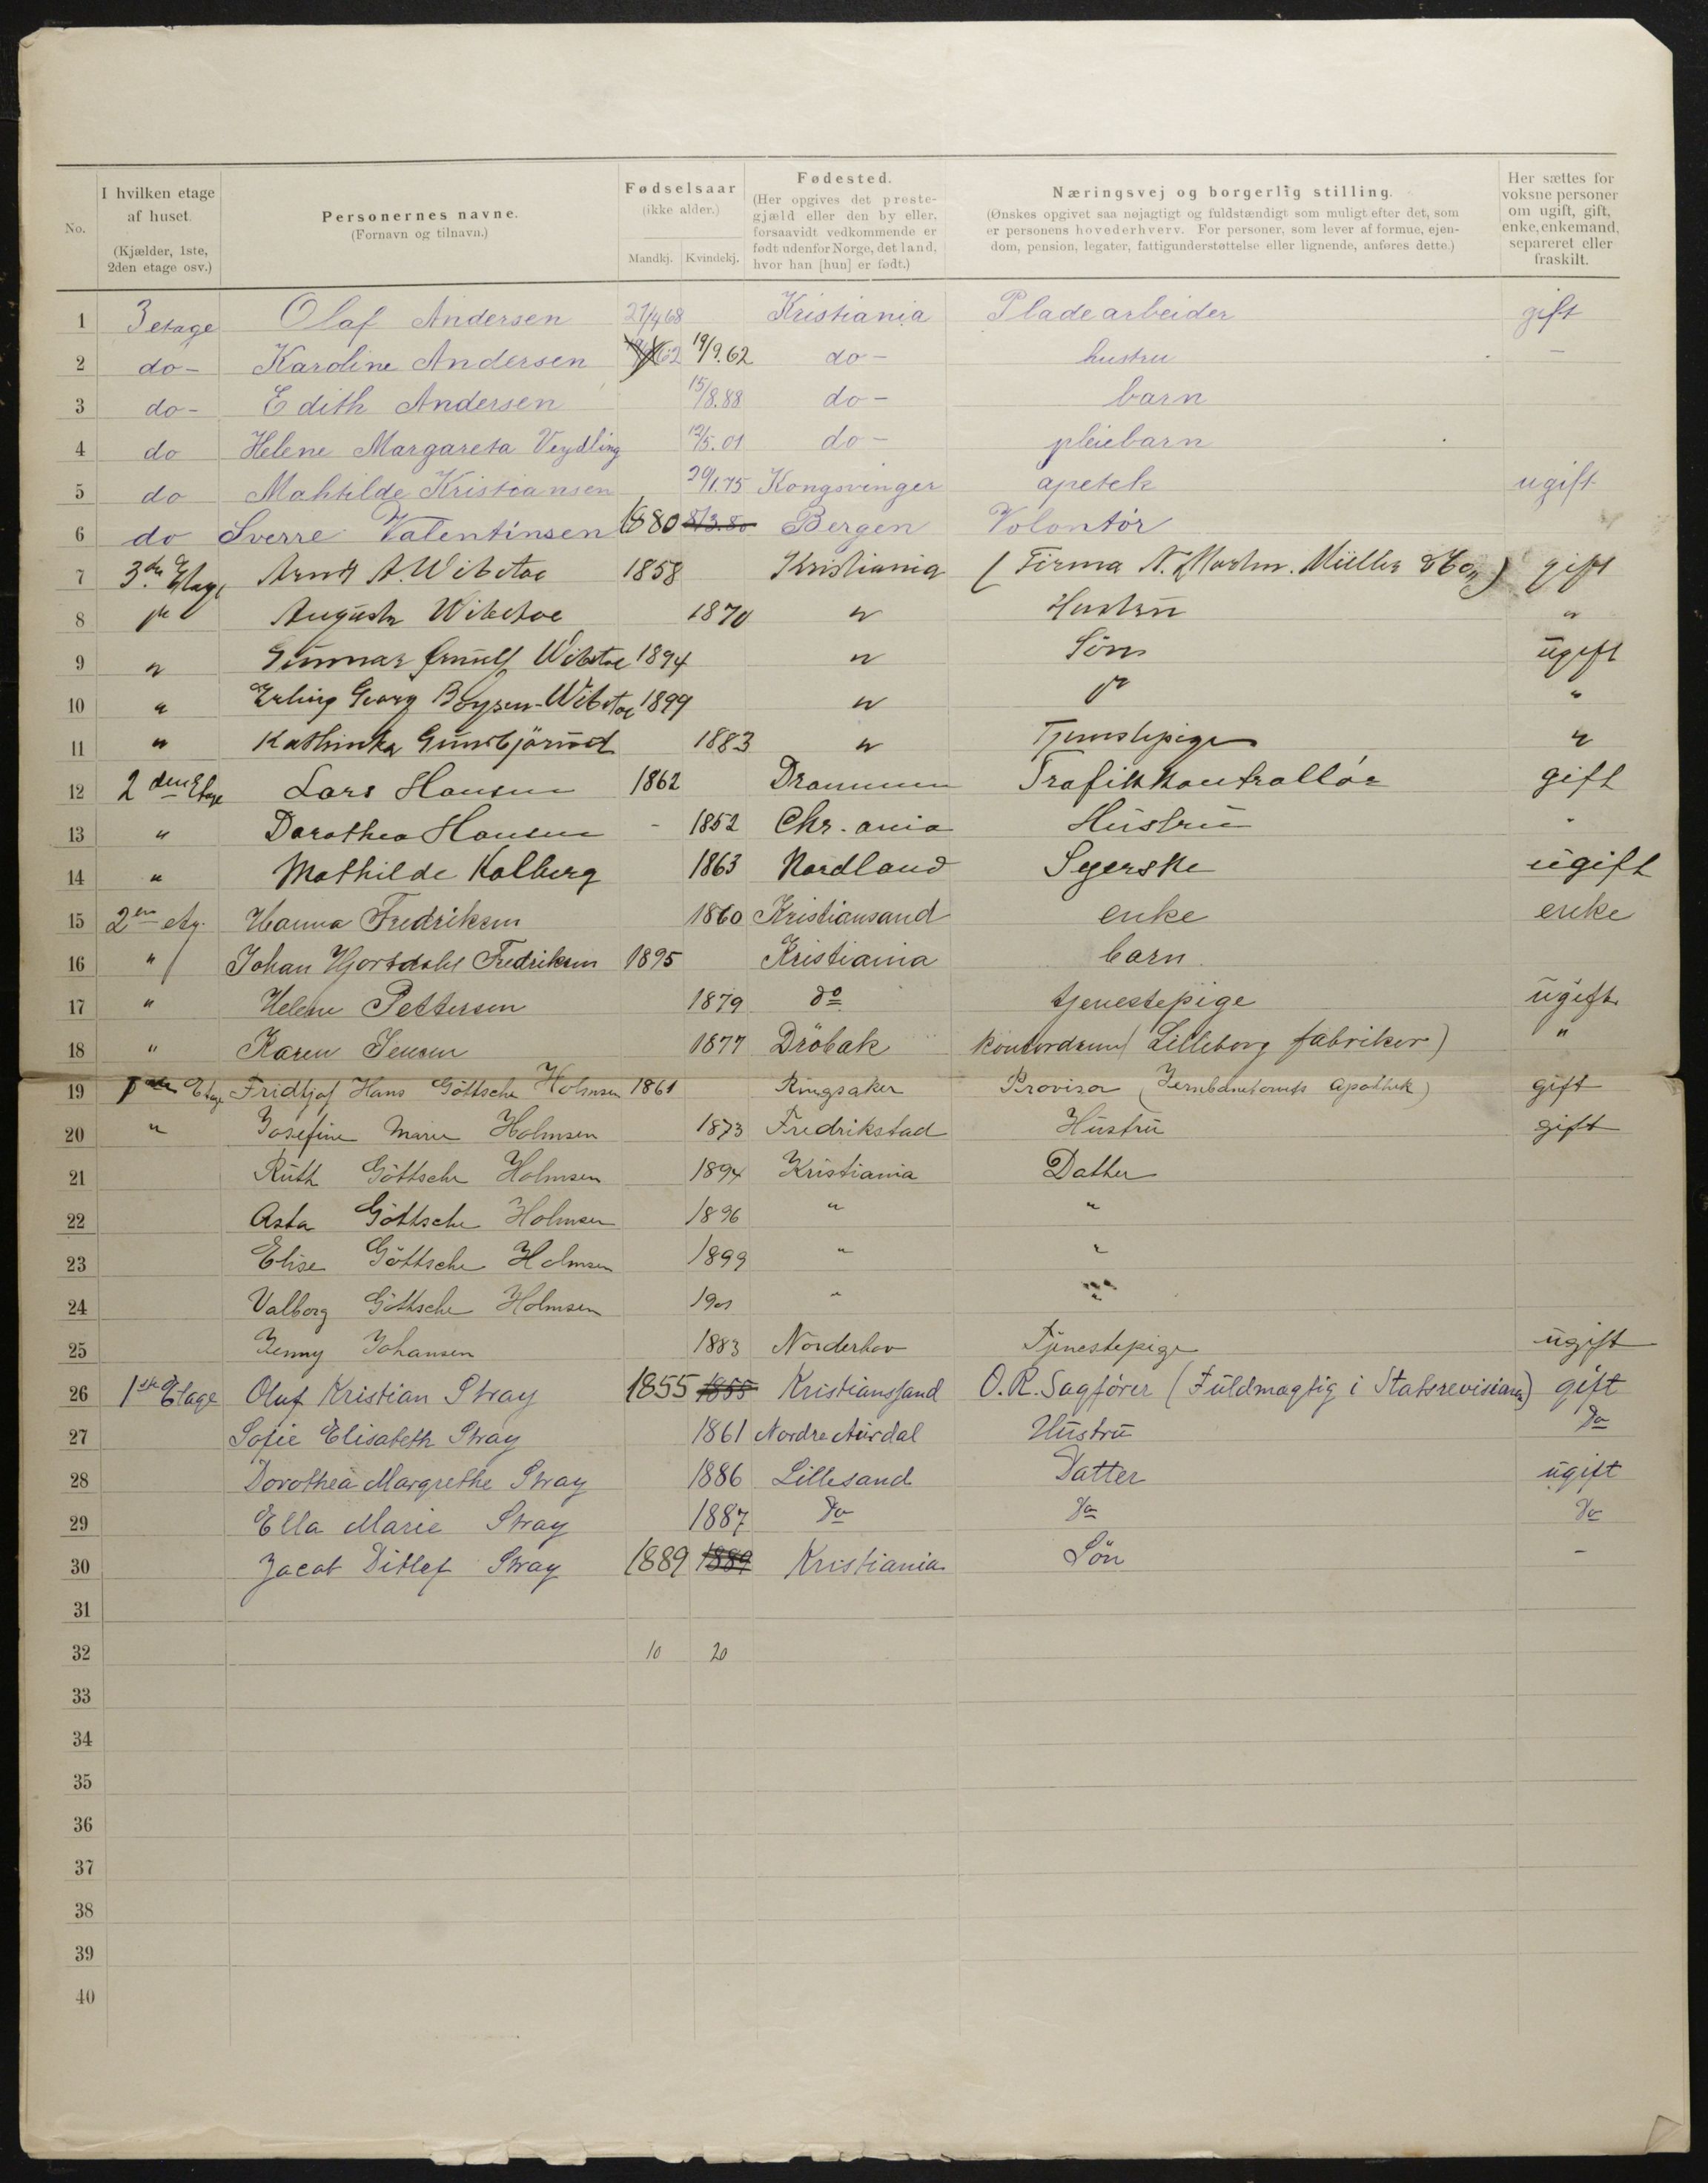 No.
I hvilken etage af huset. (Kjælder, 1ste, 2den etage osv.)
Personernes navne. (Fornavn og tilnavn.)
Fødselsaar (ikke alder.) Mandkj. Kvindekj.
Fødested. (Her opgives det prestegjæld eller den by eller, forsaavidt vedkommende er født udenfor Norge, det land, hvor han [hun] er født.)
Næringsvej og borgerlig stilling. (Ønskes opgivet saa nøjagtigt og fuldstændigt som muligt efter det, som er personens hovederhverv. For personer, som lever af formue, ejendom, pension, legater, fattigunderstøttelse eller lignende, anføres dette.)
Her sættes for voksne personer om ugift, gift, enke, enkemand, separeret eller fraskilt.
1 3 etage Olaf Andersen 27/4 68 Kristiania Pladearbeider gift
2 do- Karoline Andersen 19/9.62 do- hustru -
3 do- Edith Andersen 15/8.88 do- barn
4 do Helene Margareta Veydling 12/5.01 do- pleiebarn
5 do Mahtilde Kristiansen 29/1.75 Kongsvinger apetek ugift
6 do Sverre Valentinsen 1880 8/3.80 Bergen Volontør
7 3die Etage Arndt A. Wibetoe 1858 Kristiania (Firma N. Marthn. Müller & Co) gift
8 Augusta Wibetoe 1870 " Hustrü "
9 " Günnar Arnulf Wibetoe 1894 " Sön ügift
10 " Erling Georg Boysen-Wibetoe 1899 " "
11 " Kathinka Günsbjörnsd 1883 " Tjenestepige "
12 2 den Etage Lars Hansen 1862 Drammen Trafikkontrollør gift
13 " Dorothea Hansen - 1852 Chr.ania Hüstrü "
14 " Mathilde Kolberg 1863 Nordland Syerske ügift
15 2en etg. Hanna Fredriksen 1860 Kristiansand enke enke
16 " Johan Hjortdahl Fredriksen 1895 Kristiania barn
17 " Helene Pettersen 1879 do tjenestepige ügift
18 " Karen Jensen 1877 Dröbak kontordame (Lilleborg fabriker) "
19 Etage Fridtjof Hans Göttsche Holmsen 1861 Ringsaker Provisor (Jernbanetorvets Apothek) gift
20 " Josefine Marie Holmsen 1873 Fredrikstad Hüstrü gift
21 Rüth Göttsche Holmsen 1894 Kristiania Datter
22 Asta Göttsche Holmsen 1896 " "
23 Elise Göttsche Holmsen 1899 " "
24 Valborg Göttsche Holmsen 1901 " "
25 Jenny Johansen 1883 Norderhov Tjenestepige ugift
26 1ste Etage Oluf Kristian Stray 1855 1855 Kristianssand O.R. Sagfører (Füldmægtig i Statsrevisionen) gift
27 Sofie Elisabeth Stray 1861 Nordre Aürdal Hüstrü Do
28 Dorothea Margrethe Stray 1886 Lillesand Datter ugift
29 Ella Marie Stray 1887 Do Do Do
30 Jacob Ditlef Stray 1889 1889 Kristiania Sön -
31
32 10 20
33
34
35
36
37
38
39
40